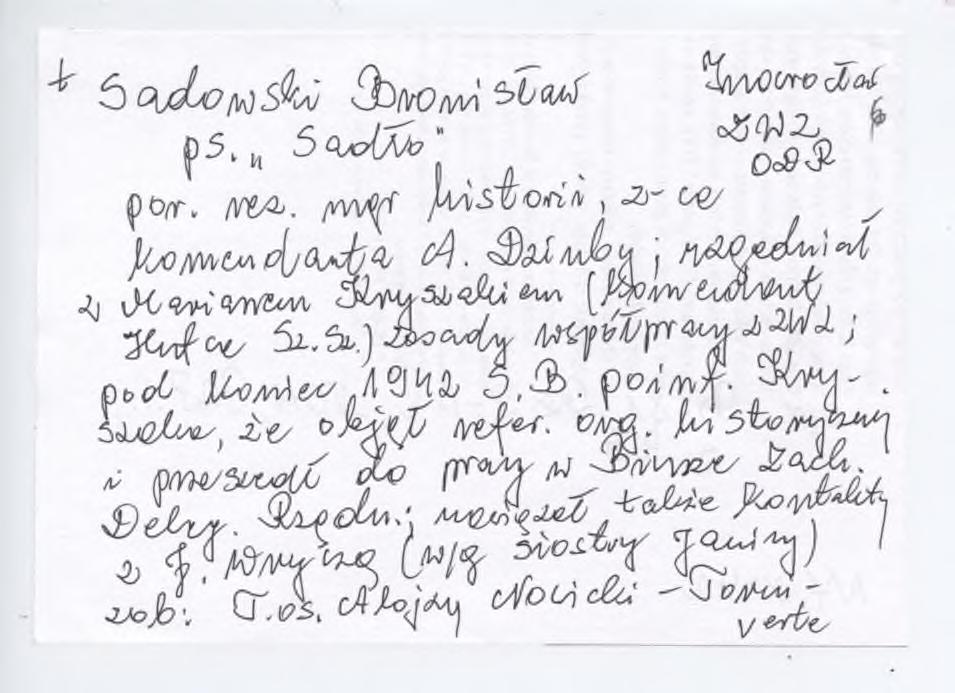 † Sadowski Bronisław
Inowrocław
ps. „Sadło"
ZWZ
ODR
por. rez. mgr historii, z-ca
Komendanta A. Dziuby; uzgadniał
z Marianem Kryszakiem (Komendant
Hufca Sz. Sz.) zasady współpracy z ZWZ;
pod koniec 1942 S. B. poinf. Kry-
szaka, że objął refer. org. historyczny
i przeszedł do pracy w Biurze Zach.
Deleg. Rządu.; nawiązał także kontakty
z J. Wryczą (w/g siostry Janiny)
zob: T. os. Alojzy Nocicki - Toruń -
verte